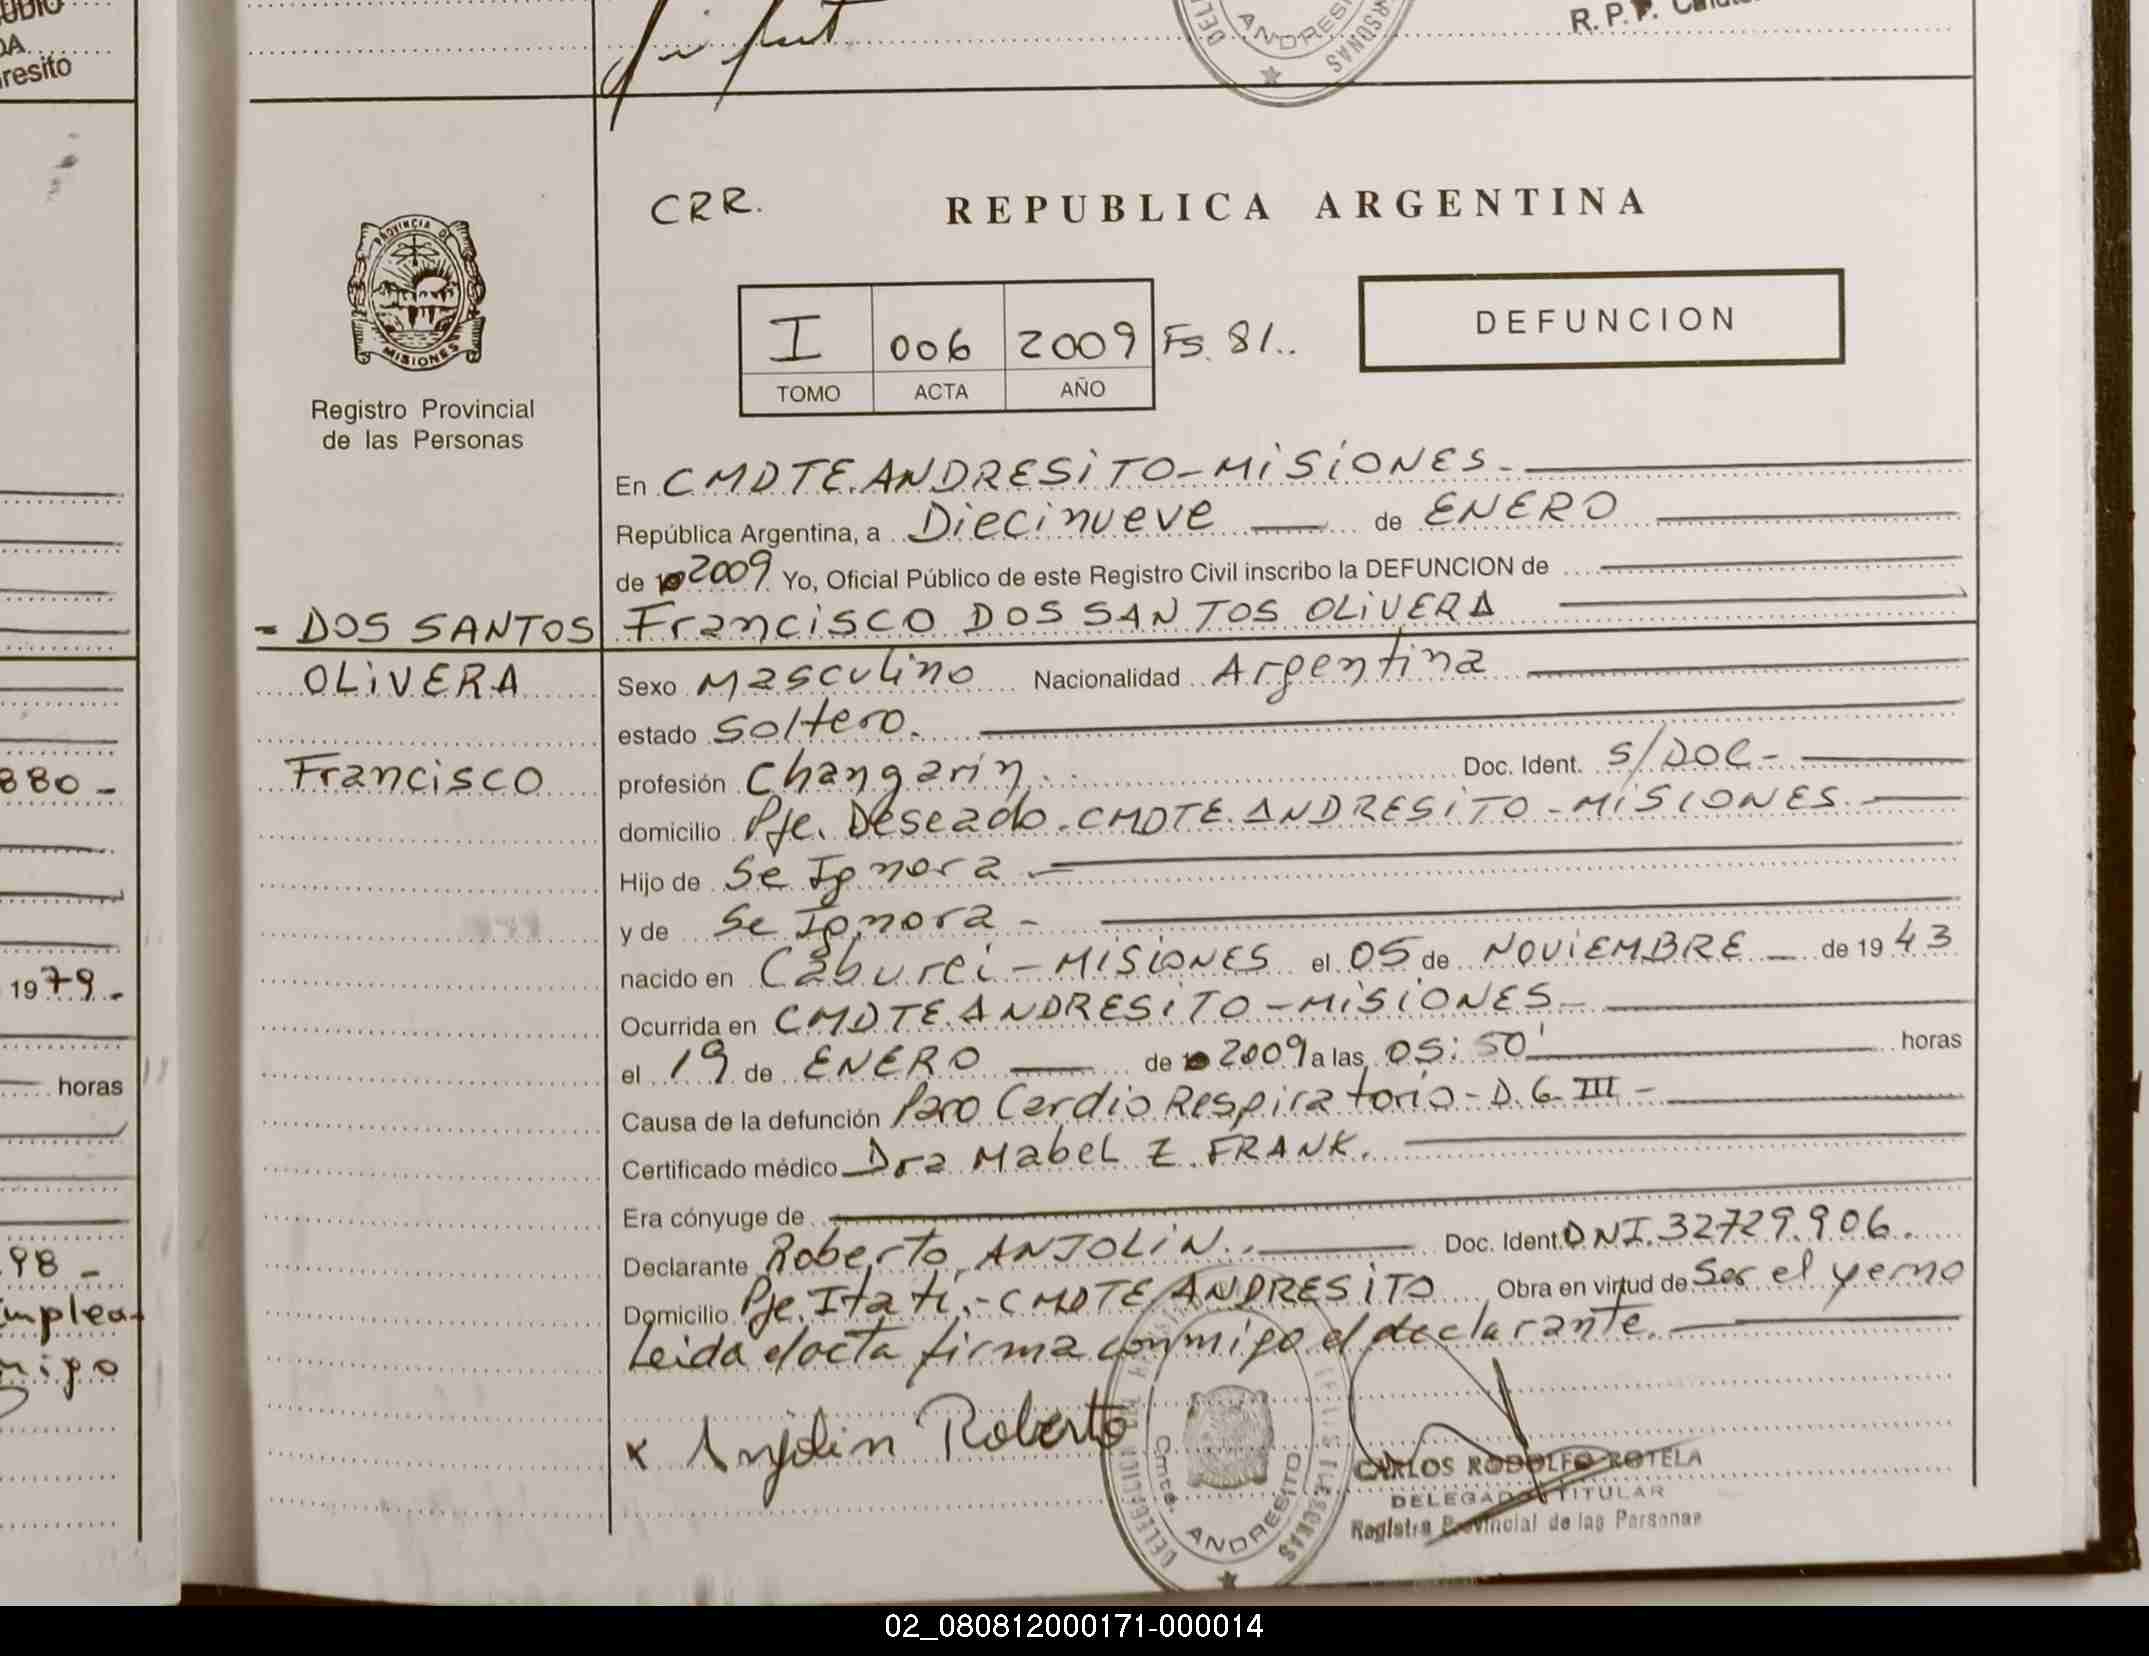 UDIO
DA
resito
R. P. P.
DEL
ANDRESI
SONAS
PROVINCIA DE
MISIONES
Registro Provincial
de las Personas
CRR.
REPUBLICA ARGENTINA
I 006 2009 Fs. 81..
TOMO ACTA AÑO
DEFUNCION
En CMDTE. ANDRESiTO-MiSiONES-
República Argentina, a Diecinueve de ENERO
de 2009 Yo, Oficial Público de este Registro Civil inscribo la DEFUNCION de
- DOS SANTOS
Francisco DOS SANTOS OLiVERA
OLiVERA
Sexo Masculino Nacionalidad Argentina
estado Soltero.
Francisco
profesión Changarín. Doc. Ident. S/DOC-
domicilio Pje. Deseado. CMDTE. ANDRESiTO-MiSIONES
Hijo de Se Ignora
y de Se Ignora -
nacido en Caburei-MiSiONES el 05 de NOViEMBRE de 1943
Ocurrida en CMDTE. ANDRESiTO-MiSiONES-
el 19 de ENERO de 2009 a las 05:50' horas
Causa de la defunción Paro Cardio Respiratorio-D.G III-
Certificado médico Dra Mabel Z. FRANK.
Era cónyuge de
Declarante Roberto ANJOLiN. Doc. Ident. DNI. 32729.906.
Domicilio Pje. Itati.-CMDTE ANDRESiTO Obra en virtud de Ser el yerno
Leida el acta firma conmigo el declarante.
x Anjolin Roberto
DELEGACION
Cmte. ANDRESITO
PERSONAS
CARLOS RODOLFO ROTELA
DELEGADO TITULAR
Registro Provincial de las Personas
880-
1979.-
horas
98-
emplea-
migo
02_080812000171-000014